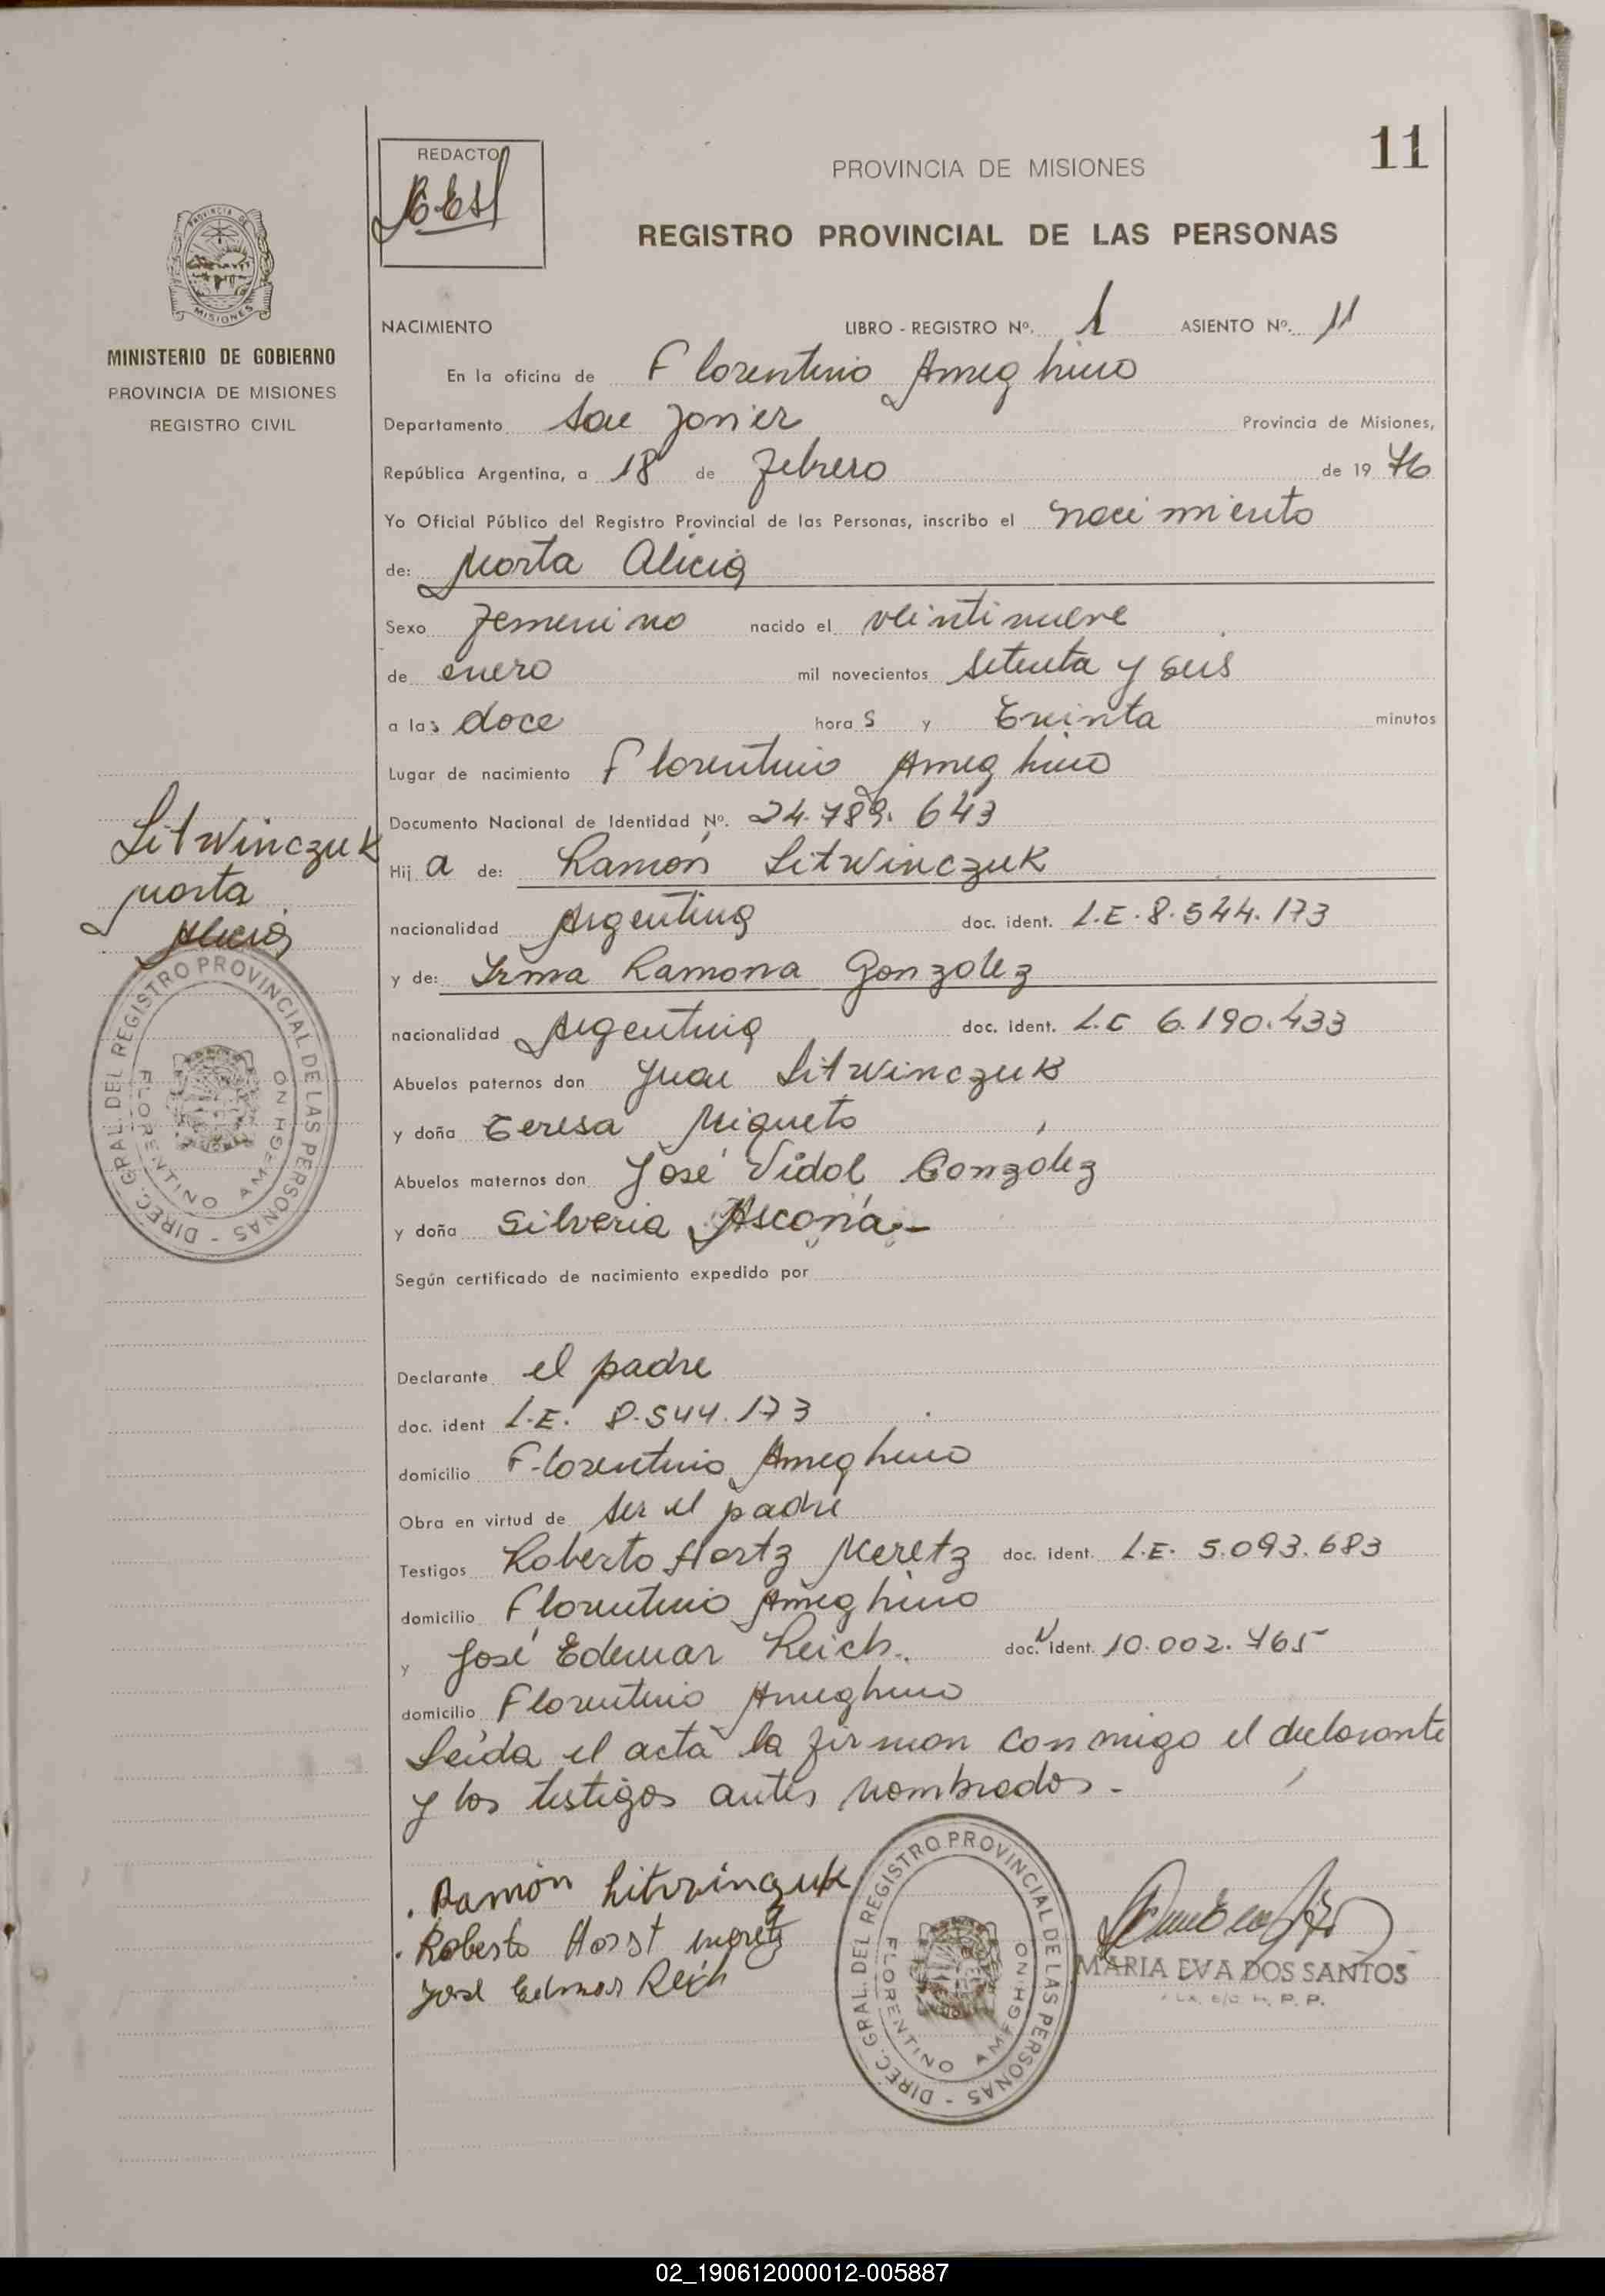 11
REDACTO
PROVINCIA DE MISIONES
REGISTRO PROVINCIAL DE LAS PERSONAS
PROVINCIA DE
MISIONES
MINISTERIO DE GOBIERNO
PROVINCIA DE MISIONES
REGISTRO CIVIL
NACIMIENTO LIBRO - REGISTRO Nº. 1 ASIENTO Nº. 11
En la oficina de Florentino Ameghino
Departamento San Javier Provincia de Misiones,
República Argentina, a 18 de febrero de 1976
Yo Oficial Público del Registro Provincial de las Personas, inscribo el nacimiento
de: Marta Alicia
Sexo femenino nacido el veintinueve
de enero mil novecientos setenta y seis
a las doce horas y treinta minutos
Lugar de nacimiento Florentino Ameghino
Documento Nacional de Identidad Nº. 24.789.643
Hija de: Ramón Litwinczuk
nacionalidad Argentina doc. ident. L.E. 8.544.173
y de: Irma Ramona Gonzalez
nacionalidad Argentina doc. ident. L.C 6.190.433
Abuelos paternos don Juan Litwinczuk
y doña Teresa Miqueto
Abuelos maternos don José Vidal Gonzalez
y doña Silveria Ascona.-
Según certificado de nacimiento expedido por
Declarante el padre
doc. ident L.E. 8.544.173
domicilio Florentino Ameghino
Obra en virtud de ser el padre
Testigos Roberto Hortz Meretz doc. ident. L.E. 5.093.683
domicilio Florentino Ameghino
y José Edemar Reich. doc. ident. 10.002.765
domicilio Florentino Ameghino
Leída el acta la firman conmigo el declarante
y los testigos antes nombrados.-
Litwinczuk
Marta
Alicia
DIREC. GRAL. DEL REGISTRO PROVINCIAL DE LAS PERSONAS -
FLORENTINO AMEGHINO
Ramón Litwinczuk
Roberto Horst Meretz
José Edmar Reich
DIREC. GRAL. DEL REGISTRO PROVINCIAL DE LAS PERSONAS -
FLORENTINO AMEGHINO
MARIA EVA DOS SANTOS
02_190612000012-005887